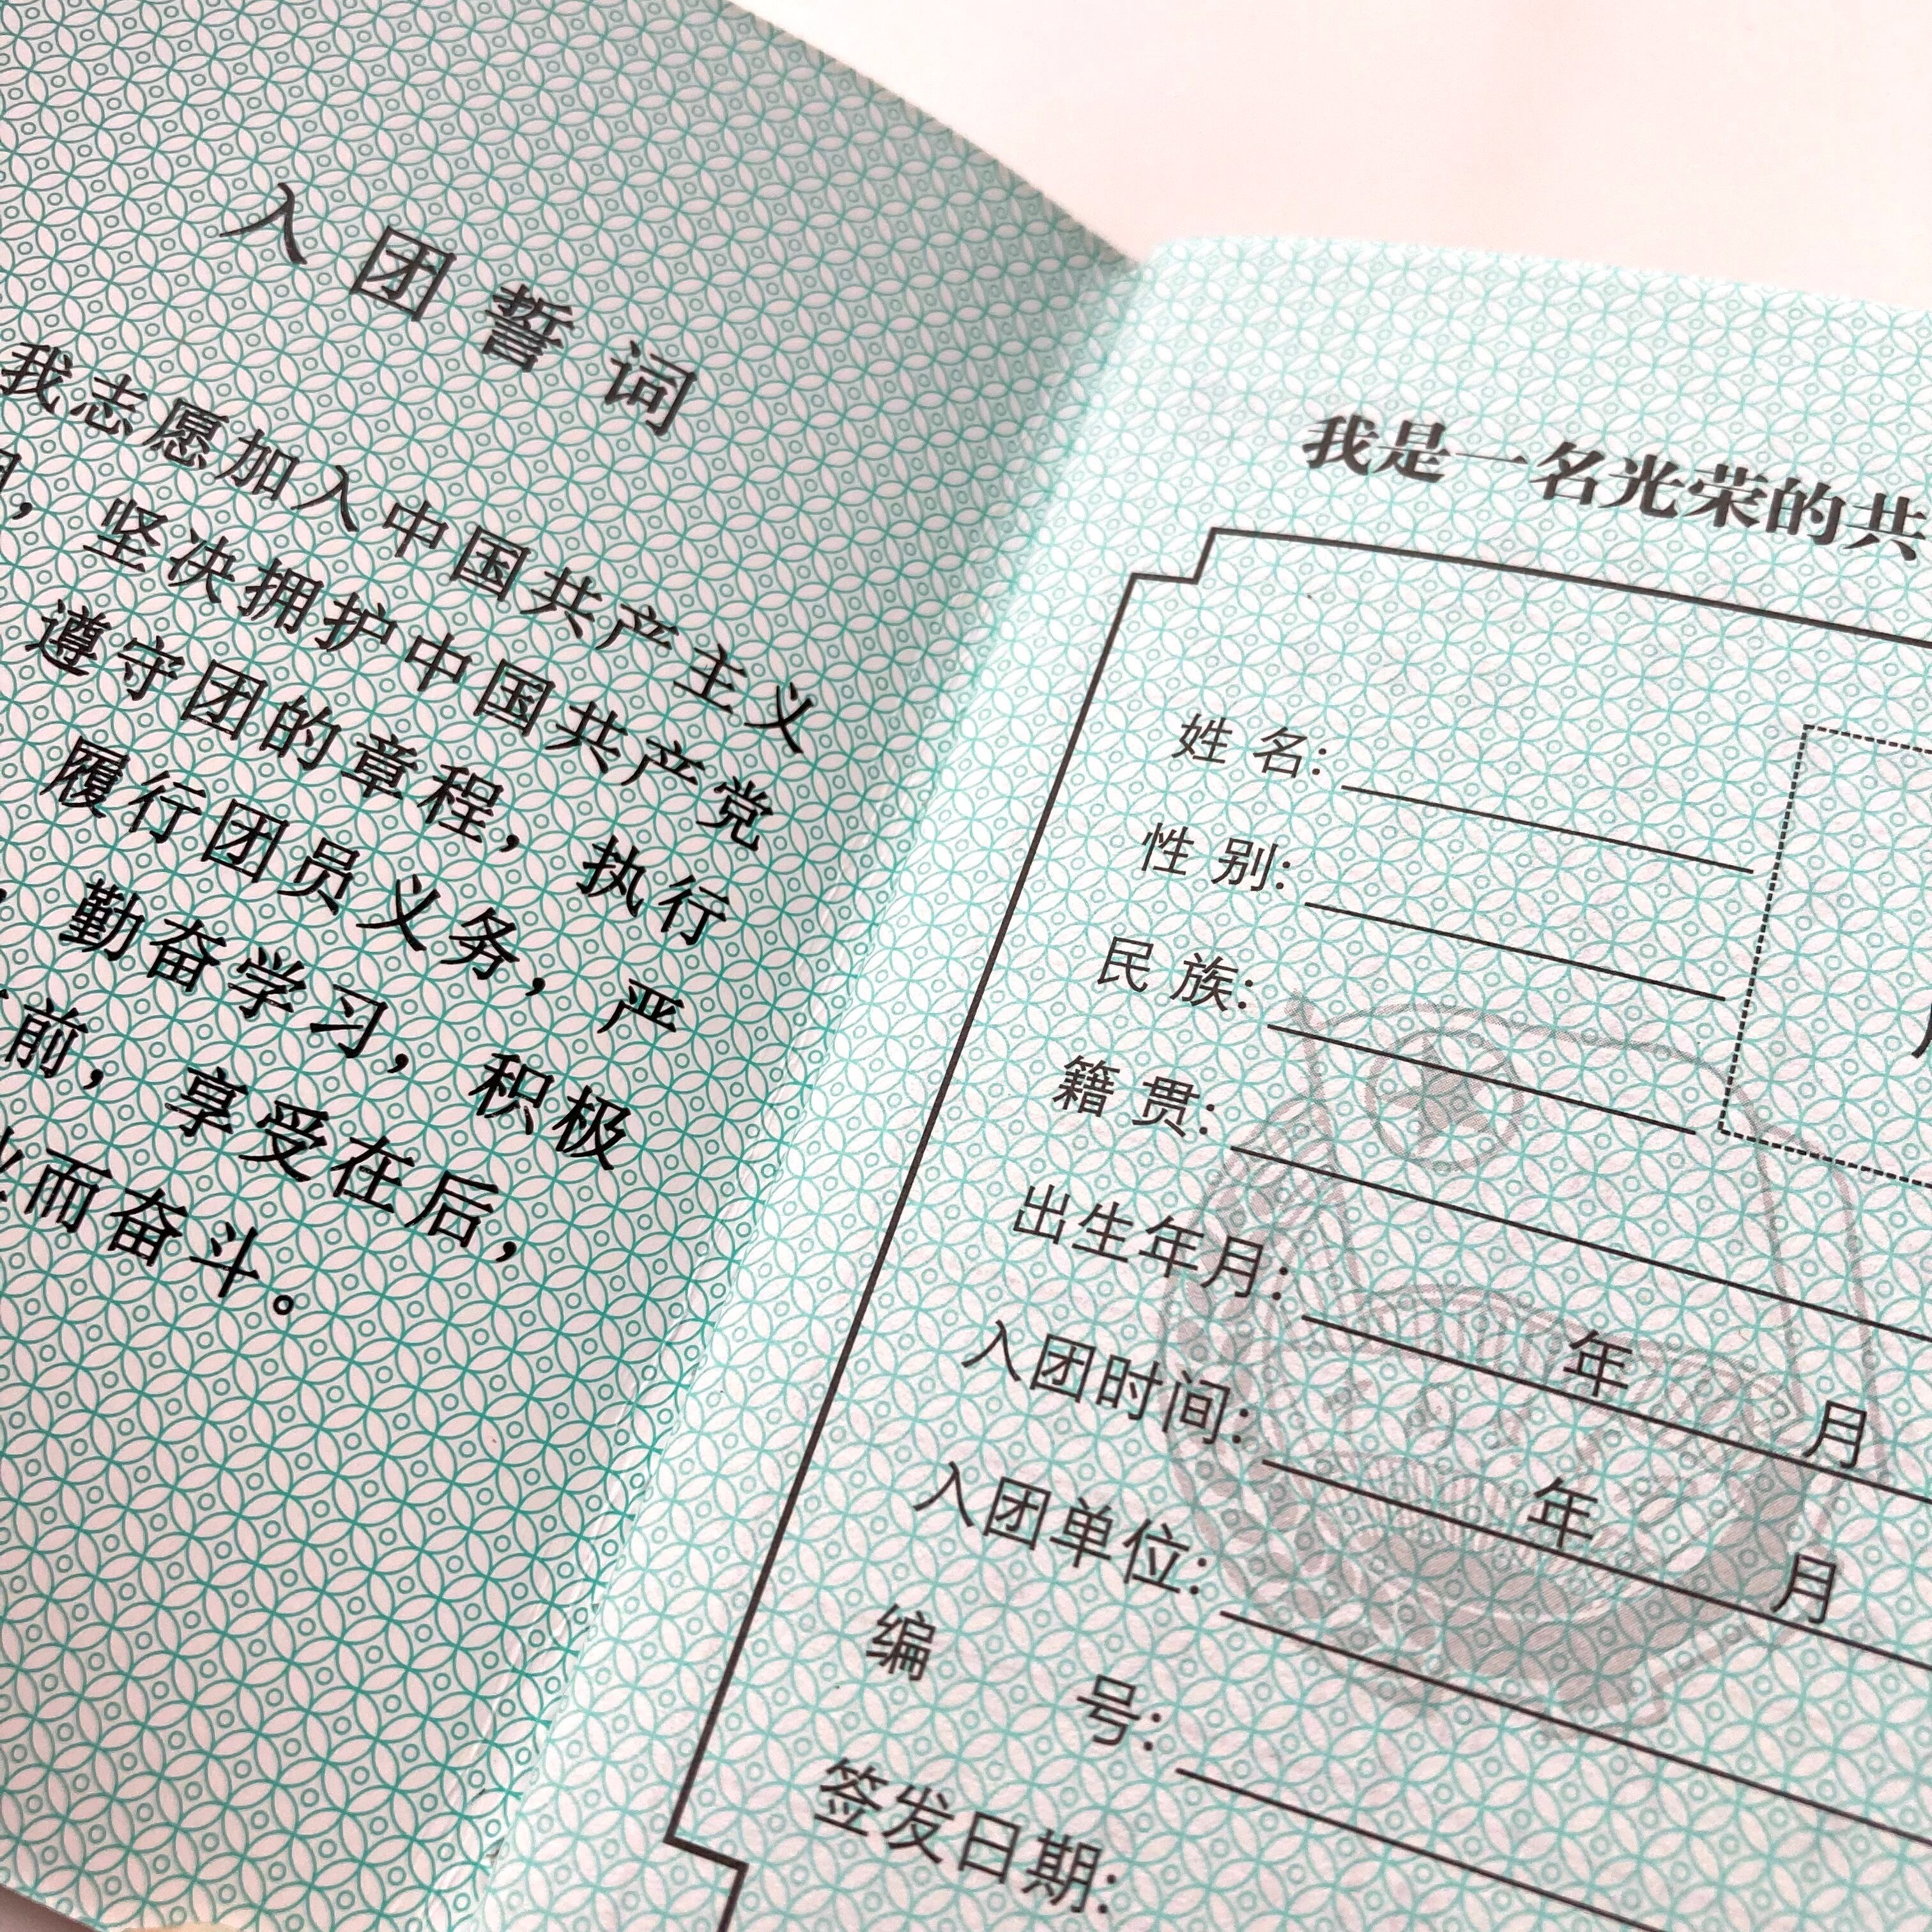 入团誓词
我志愿加入中国共产主义
，坚决拥护中国共产党
遵守团的章程，执行
履行团员义务，严
，勤奋学习，积极
前，享受在后，
而奋斗。
我是一名光荣的共
姓名:
性别:
民族:
籍贯:
出生年月: 年 月
入团时间: 年 月
入团单位:
编号:
签发日期: